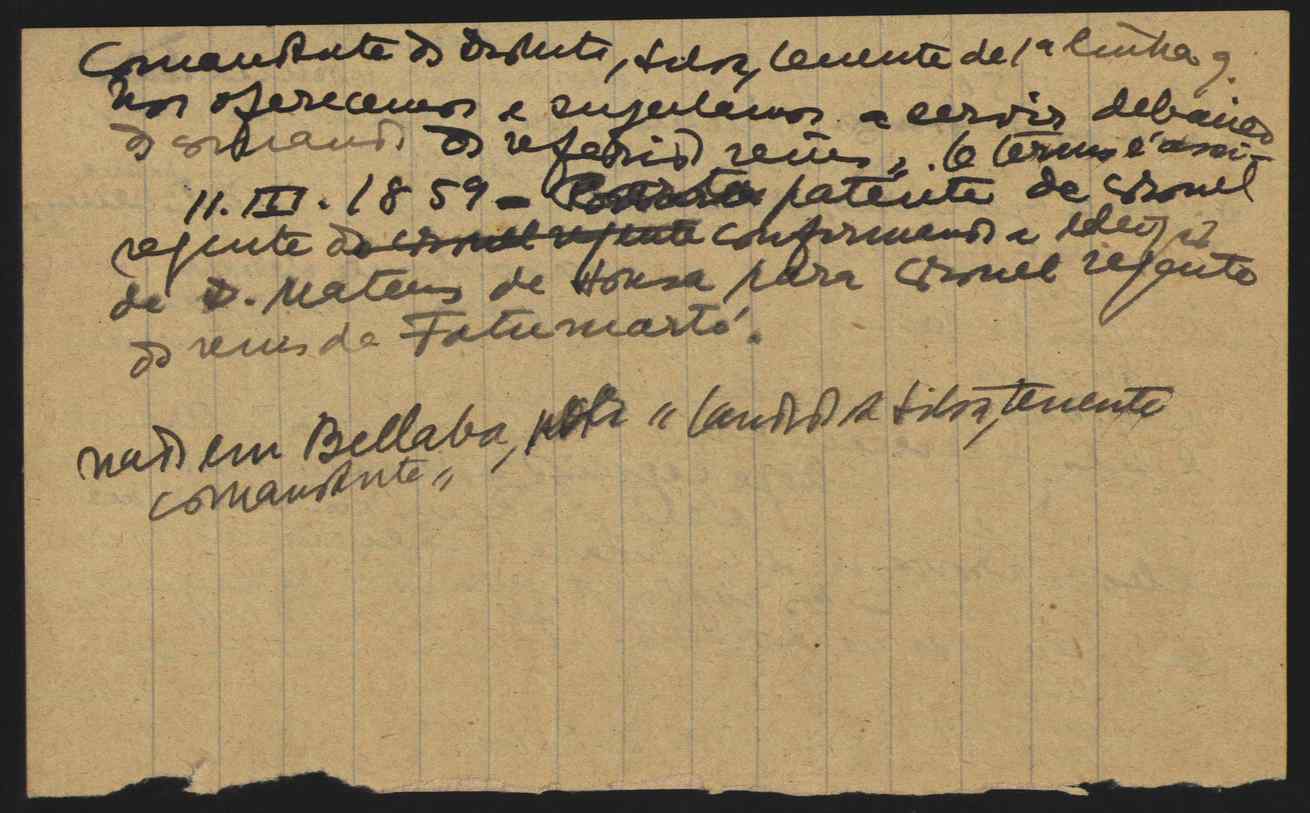 Comandante do Distrito, Silva, tenente de 1ª linha q.
nos oferecemos e sujeitamos a servir debaixo
do comando do referido reino". O termo é assi-
11.III.1859 - patente de coronel
regente do coronel regente confirmando a eleição
de D. Mateus de Sousa para coronel regente
do reino de Fatumartó.
nado em Bellaba, pelo "Candido da Silva, tenente
comandante"